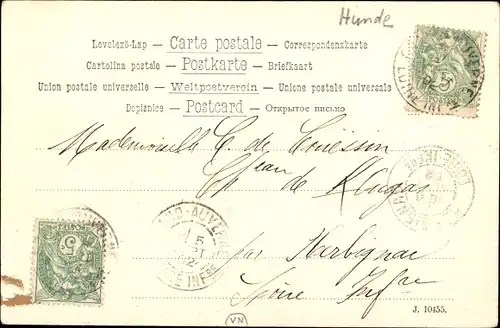 Hunde
Levelező-Lap — Carte postale — Correspondenzkarte
Cartolina postale — Postkarte — Briefkaart
Union postale universelle — Weltpostverein — Unione postale universale
Dopisnice — Postcard — Открытое письмо
Mademoiselle C. de Couëssin
de
par Herbignac
Loire Infre
5
5
J. 10455.
VN